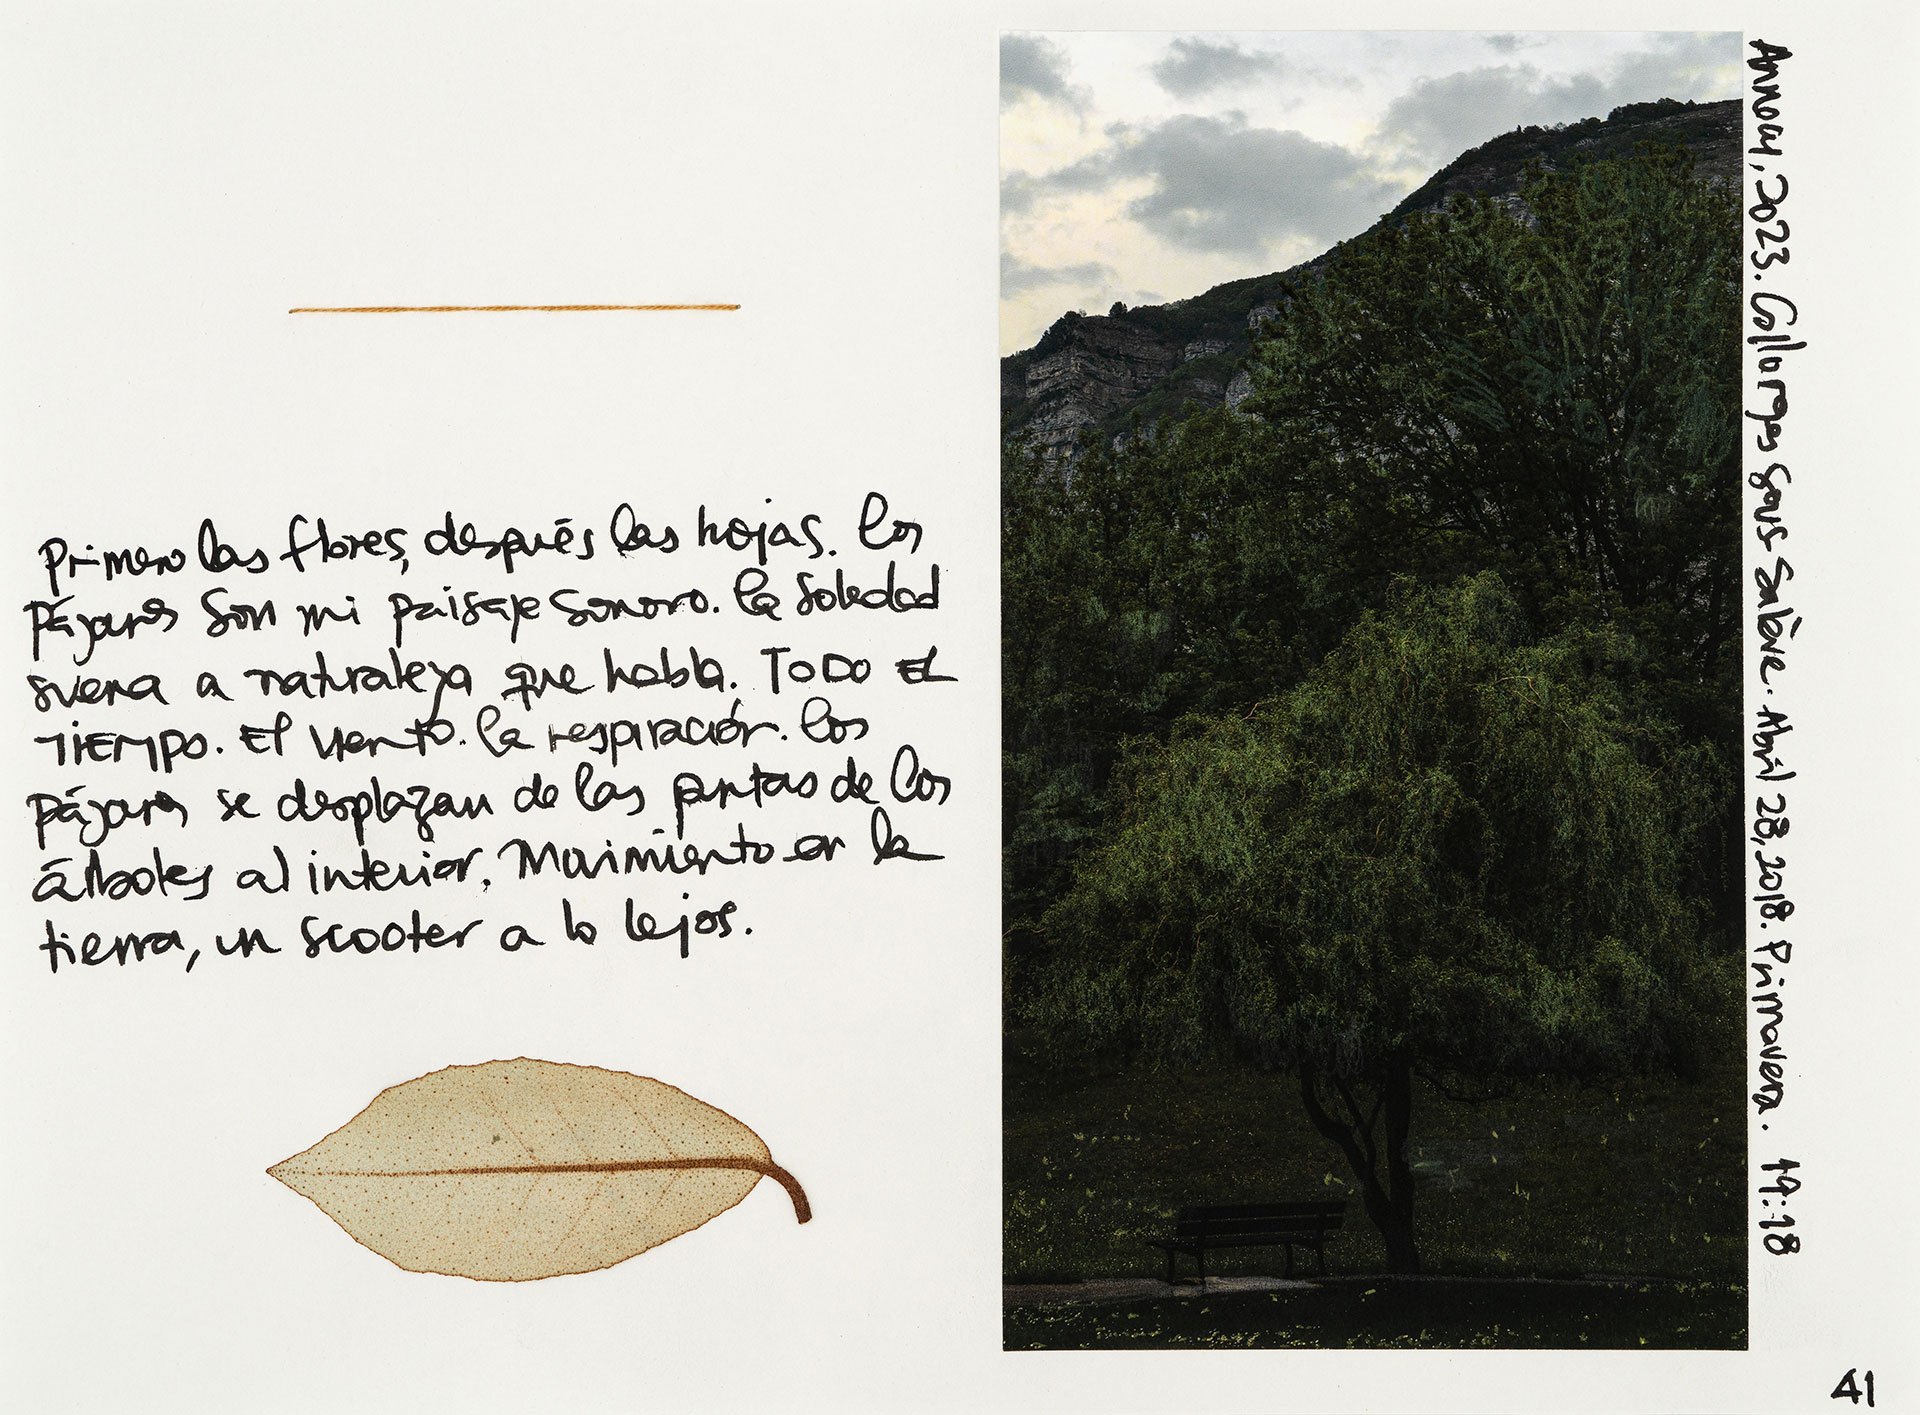 Primero las flores, después las hojas. Los
pájaros son mi paisaje sonoro. La soledad
suena a naturaleza que habla. TODO EL
TIEMPO. El viento. La respiración. Los
pájaros se desplazan de las puntas de los
árboles al interior. Movimiento en la
tierra, un scooter a lo lejos.
2023. Collonges sous Salève. Abril 28, 2018. Primavera. 19:18
41